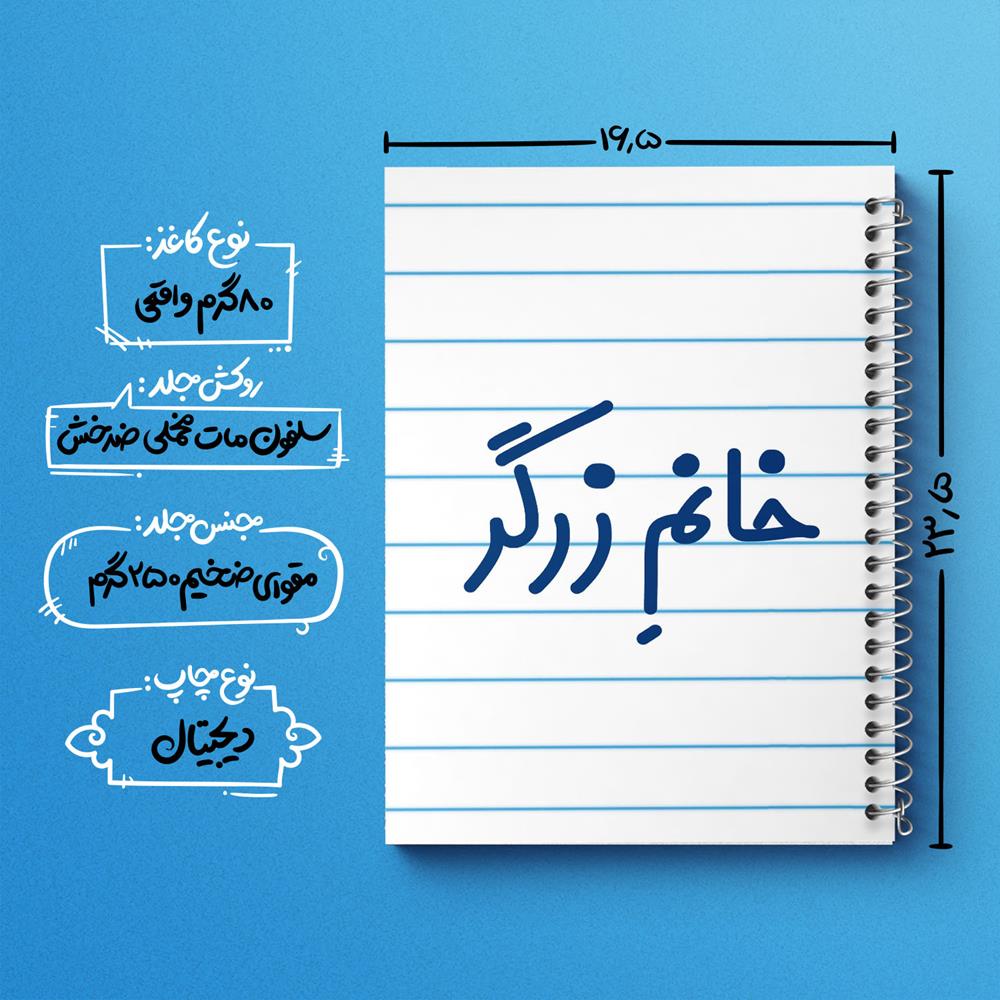 ۱۶٫۵
نوع کاغذ:
۸۰گرم واقعی
روکش جلد:
سلفون مات مخملی ضدخش
جنس جلد:
مقوای ضخیم ۲۵۰گرم
نوع چاپ:
دیجیتال
خانمِ زرگر
۲۳٫۵